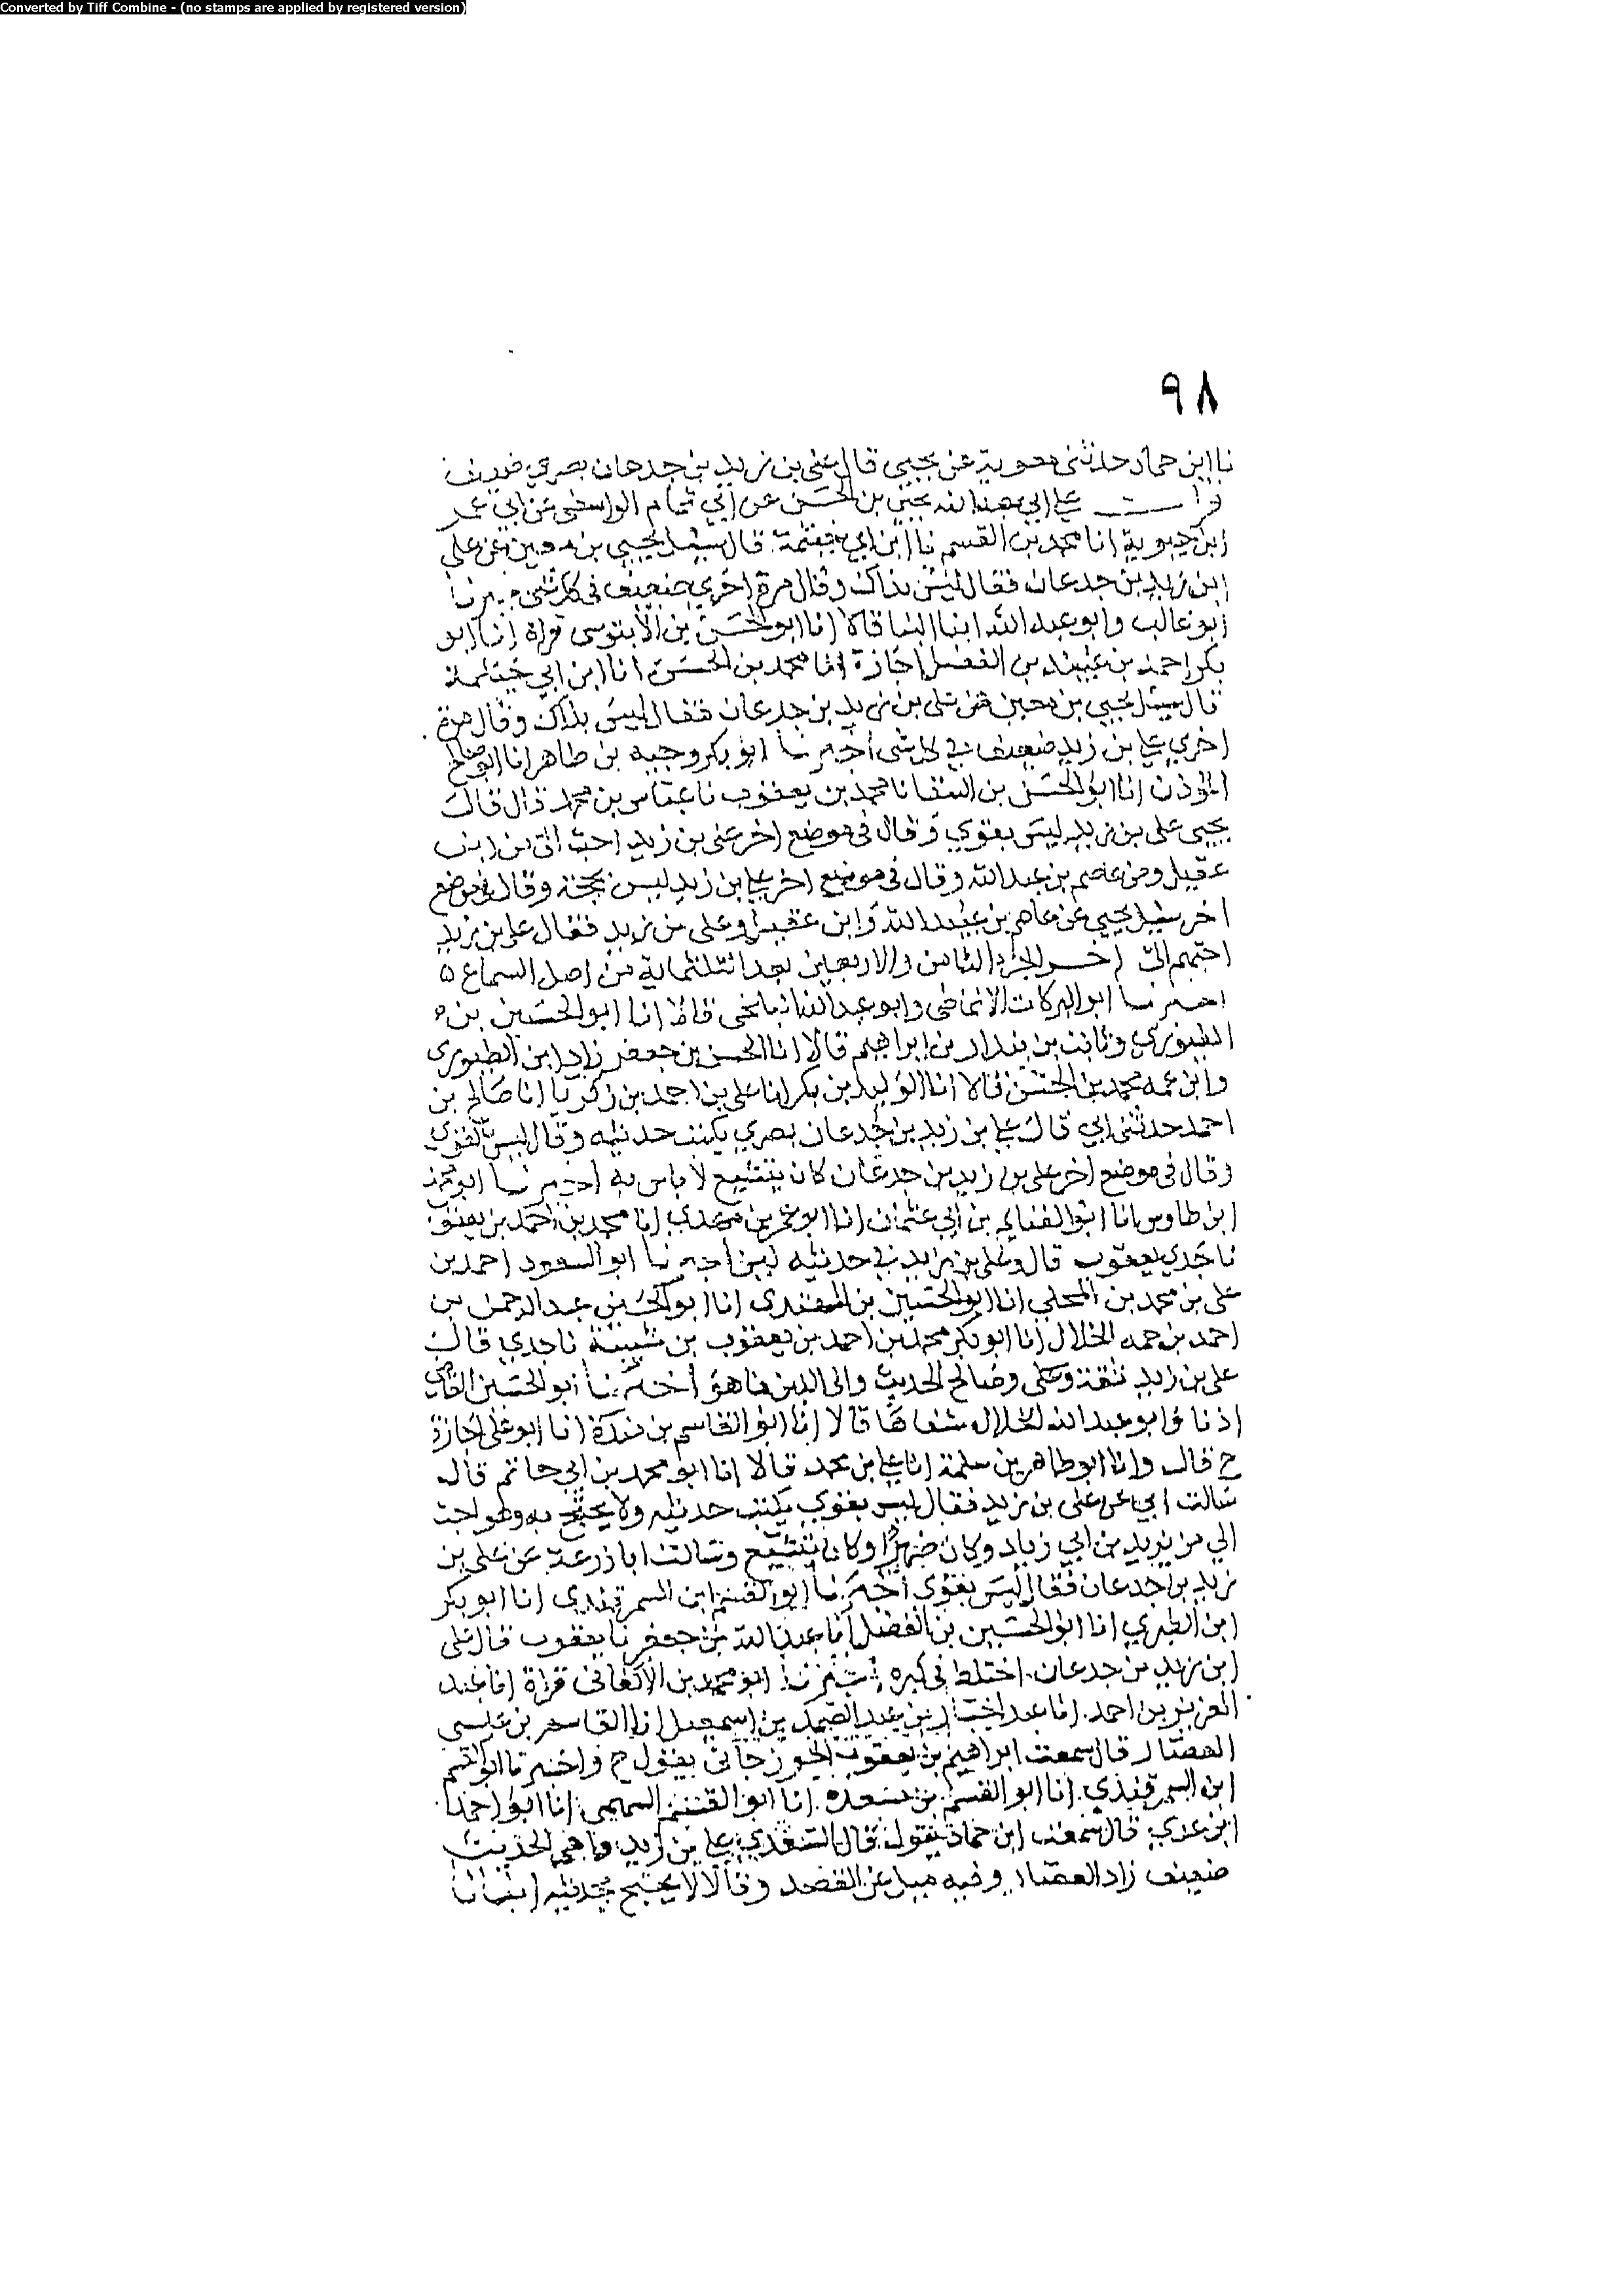 Converted by Tiff Combine - (no stamps are applied by registered version)
٩٨
نا ابن حماد حدثني معوية عن يحيى قال علي بن زيد بن جدعان بصري ضعيف
قرات على ابي عبد الله يحيى بن الحسن عن ابي تمام الواسطي عن ابي عمر
ابن حيوية انا محمد بن القسم نا ابن ابي خيثمة قال سئل يحيى بن معين عن علي
ابن زيد بن جدعان فقال ليس بذاك وقال مرة اخرى ضعيف في كل شي اخبرنا
ابو غالب وابو عبد الله ابنا البنا قالا انا ابو الحسن بن الابنوسي قراة انا ابو
بكر احمد بن عبيد بن الفضل اجازة انا محمد بن الحسن انا ابن ابي خيثمة
قال سئل يحيى بن معين عن علي بن زيد بن جدعان فقال ليس بذاك وقال مرة
اخرى علي بن زيد ضعيف في كل شي اخبرنا ابو بكر وجيه بن طاهر انا ابو صالح
المؤذن انا ابو الحسن بن السقا نا محمد بن يعقوب نا عباس بن محمد قال قال
يحيى علي بن زيد ليس بقوي وقال في موضع اخر علي بن زيد احب الي من ابن
عقيل ومن عاصم بن عبيد الله وقال في موضع اخر علي بن زيد ليس بحجة وقال في موضع
اخر سئل يحيى عن عاصم بن عبيد الله وابن عقيل وعلي بن زيد فقال علي بن زيد
احبهم الي اخر الجزء الثامن والاربعين بعد الثلثماية من اصل السماع ٥
اخبرنا ابو البركات الانماطي وابو عبد الله البلخي قالا انا ابو الحسين بن
الطيوري وثابت بن بندار بن ابراهيم قالا انا الحسين بن جعفر زاد ابن الطيوري
وابن عمه محمد بن الحسن قالا انا الوليد بن بكر انا علي بن احمد بن زكريا انا صالح بن
احمد حدثني ابي قال علي بن زيد بن جدعان بصري يكتب حديثه وقال ليس بالقوي
وقال في موضع اخر علي بن زيد بن جدعان كان يتشيع لا باس به اخبرنا ابو محمد
ابن طاوس انا ابو الغنايم بن ابي عثمان انا ابو عمر بن مهدي انا محمد بن احمد بن يعقوب
نا جدي يعقوب قال وعلي بن زيد في حديثه لين اخبرنا ابو السعود احمد بن
علي بن محمد بن المجلي انا ابو الحسين بن المهتدي انا ابو الحسين عبد الرحمن بن
احمد بن حمه الخلال انا ابو بكر محمد بن احمد بن يعقوب بن شيبة نا جدي قال
علي بن زيد ثقة وصالح الحديث والى اللين ما هو اخبرنا ابو الحسين القاضي
اذنا وابو عبد الله الخلال شفاها قالا انا ابو القاسم بن مندة انا ابو علي اجازة
ح قال وانا ابو طاهر بن سلمة انا علي بن محمد قالا انا ابو محمد بن ابي حاتم قال
سالت ابي عن علي بن زيد فقال ليس بقوي يكتب حديثه ولا يحتج به وهو احب
الي من يزيد بن ابي زياد وكان ضريرا وكان يتشيع وسالت ابا زرعة عن علي بن
زيد بن جدعان فقال ليس بقوي اخبرنا ابو القسم ابن السمرقندي انا ابو بكر
ابن الطبري انا ابو الحسين بن الفضل انا عبد الله بن جعفر نا يعقوب قال علي
ابن زيد بن جدعان اختلط في كبره اخبرنا ابو محمد بن الاكفاني قراة انا عبد
العزيز بن احمد انا عبد الجبار بن عبد الصمد بن اسمعيل انا القاسم بن عيسى
العصار قال سمعت ابراهيم بن يعقوب الجوزجاني يقول ح واخبرنا ابو القسم
ابن السمرقندي انا ابو القسم بن مسعدة انا ابو القسم السهمي انا ابو احمد
ابن عدي قال سمعت ابن حماد يقول قال السعدي علي بن زيد واهي الحديث
ضعيف زاد العصار وفيه ميل عن القصد وقالا لا يحتج بحديثه انبانا